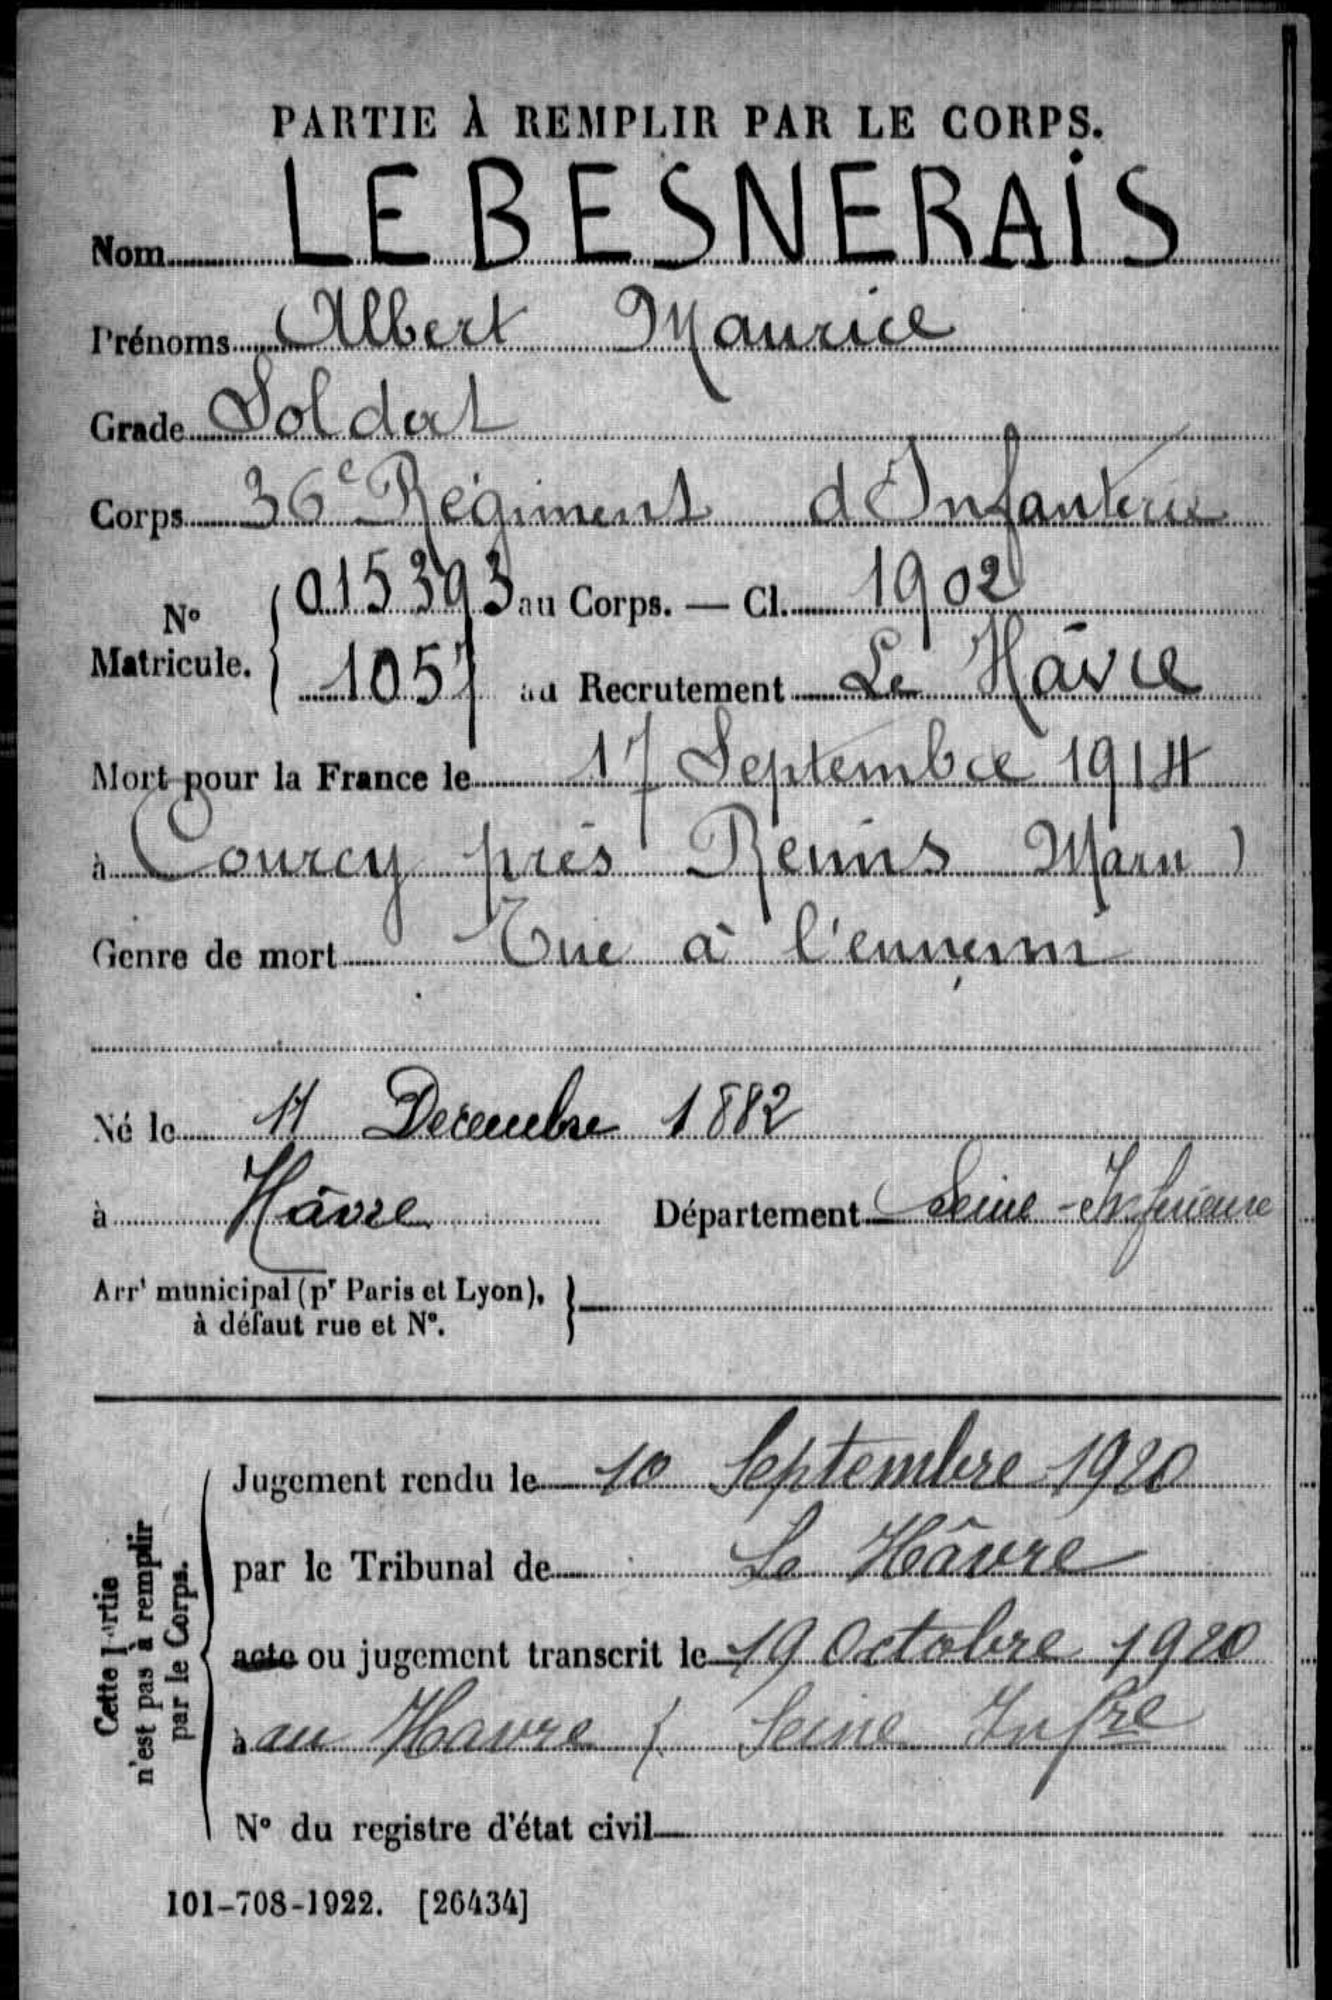 PARTIE À REMPLIR PAR LE CORPS.
Nom LEBESNERAIS
Prénoms Albert Maurice
Grade Soldat
Corps 36e Régiment d'Infanterie
N° Matricule. 015393 au Corps. — Cl. 1902
1057 au Recrutement Le Hâvre
Mort pour la France le 17 Septembre 1914
à Courcy près Reims Marne)
Genre de mort Tué à l'ennemi
Né le Decembre 1882
à Hâvre Département Seine-Inférieure
Arrt municipal (pr Paris et Lyon),
à défaut rue et N°.
Cette partie
n'est pas à remplir
par le Corps.
Jugement rendu le 10 Septembre 1920
par le Tribunal de Le Hâvre
acte ou jugement transcrit le 19 Octobre 1920
à au Havre (Seine Infre
N° du registre d'état civil
101-708-1922. [26434]